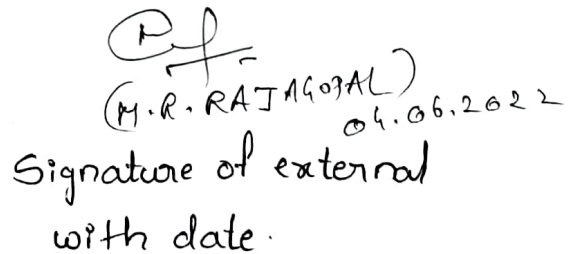 (M.R. RAJAGOPAL)
04.06.2022
Signature of external
with date.